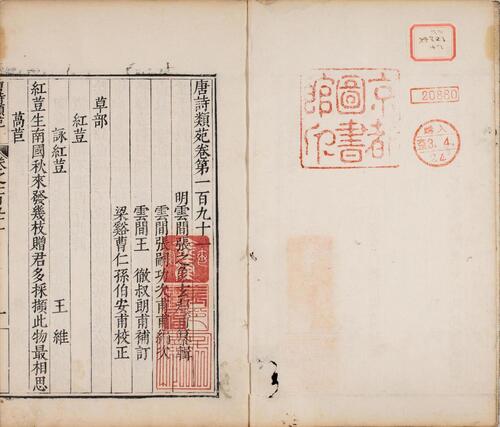 京都
圖書
館印
20880
購入
3.4.
24
唐詩類苑卷第一百九十一
明雲間張之象玄超甫纂輯
雲間張
雲間王徹叔朗甫補訂
梁谿曹仁孫伯安甫校正
草部
紅荳
詠紅荳 王維
紅荳生南國秋來發幾枝贈君多採擷此物最相思
萵苣